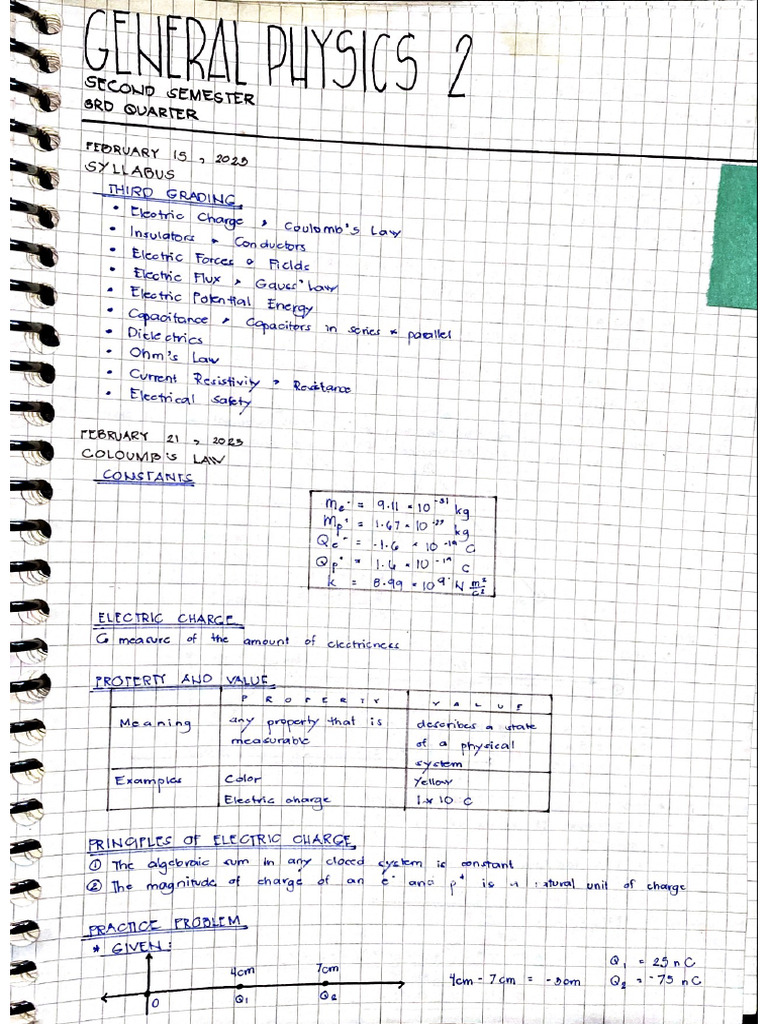 GENERAL PHYSICS 2
SECOND SEMESTER
3RD QUARTER
FEBRUARY 15, 2023
SYLLABUS
THIRD GRADING
• Electric Charge & Coulomb's Law
• Insulators & Conductors
• Electric Forces & Fields
• Electric Flux & Gauss' Law
• Electric Potential Energy
• Capacitance & Capacitors in series & parallel
• Dielectrics
• Ohm's Law
• Current Resistivity & Resistance
• Electrical Safety
FEBRUARY 21, 2023
COLOUMB'S LAW
CONSTANTS
me⁻ = 9.11 × 10⁻³¹ kg
mp⁺ = 1.67 × 10⁻²⁷ kg
Qe⁻ = -1.6 × 10⁻¹⁹ C
Qp⁺ = 1.6 × 10⁻¹⁹ C
k = 8.99 × 10⁹ N m²/C²
ELECTRIC CHARGE
↳ measure of the amount of electricness
PROPERTY AND VALUE
PROPERTY VALUE
Meaning any property that is measurable describes a state of a physical system
Examples Color Yellow
Electric charge 1 × 10 C
PRINCIPLES OF ELECTRIC CHARGE
① The algebraic sum in any closed system is constant
② The magnitude of charge of an e⁻ and p⁺ is a natural unit of charge
PRACTICE PROBLEM
* GIVEN:
4cm 7cm
0 Q₁ Q₂
4cm - 7cm = -3cm
Q₁ = 25 nC
Q₂ = -75 nC